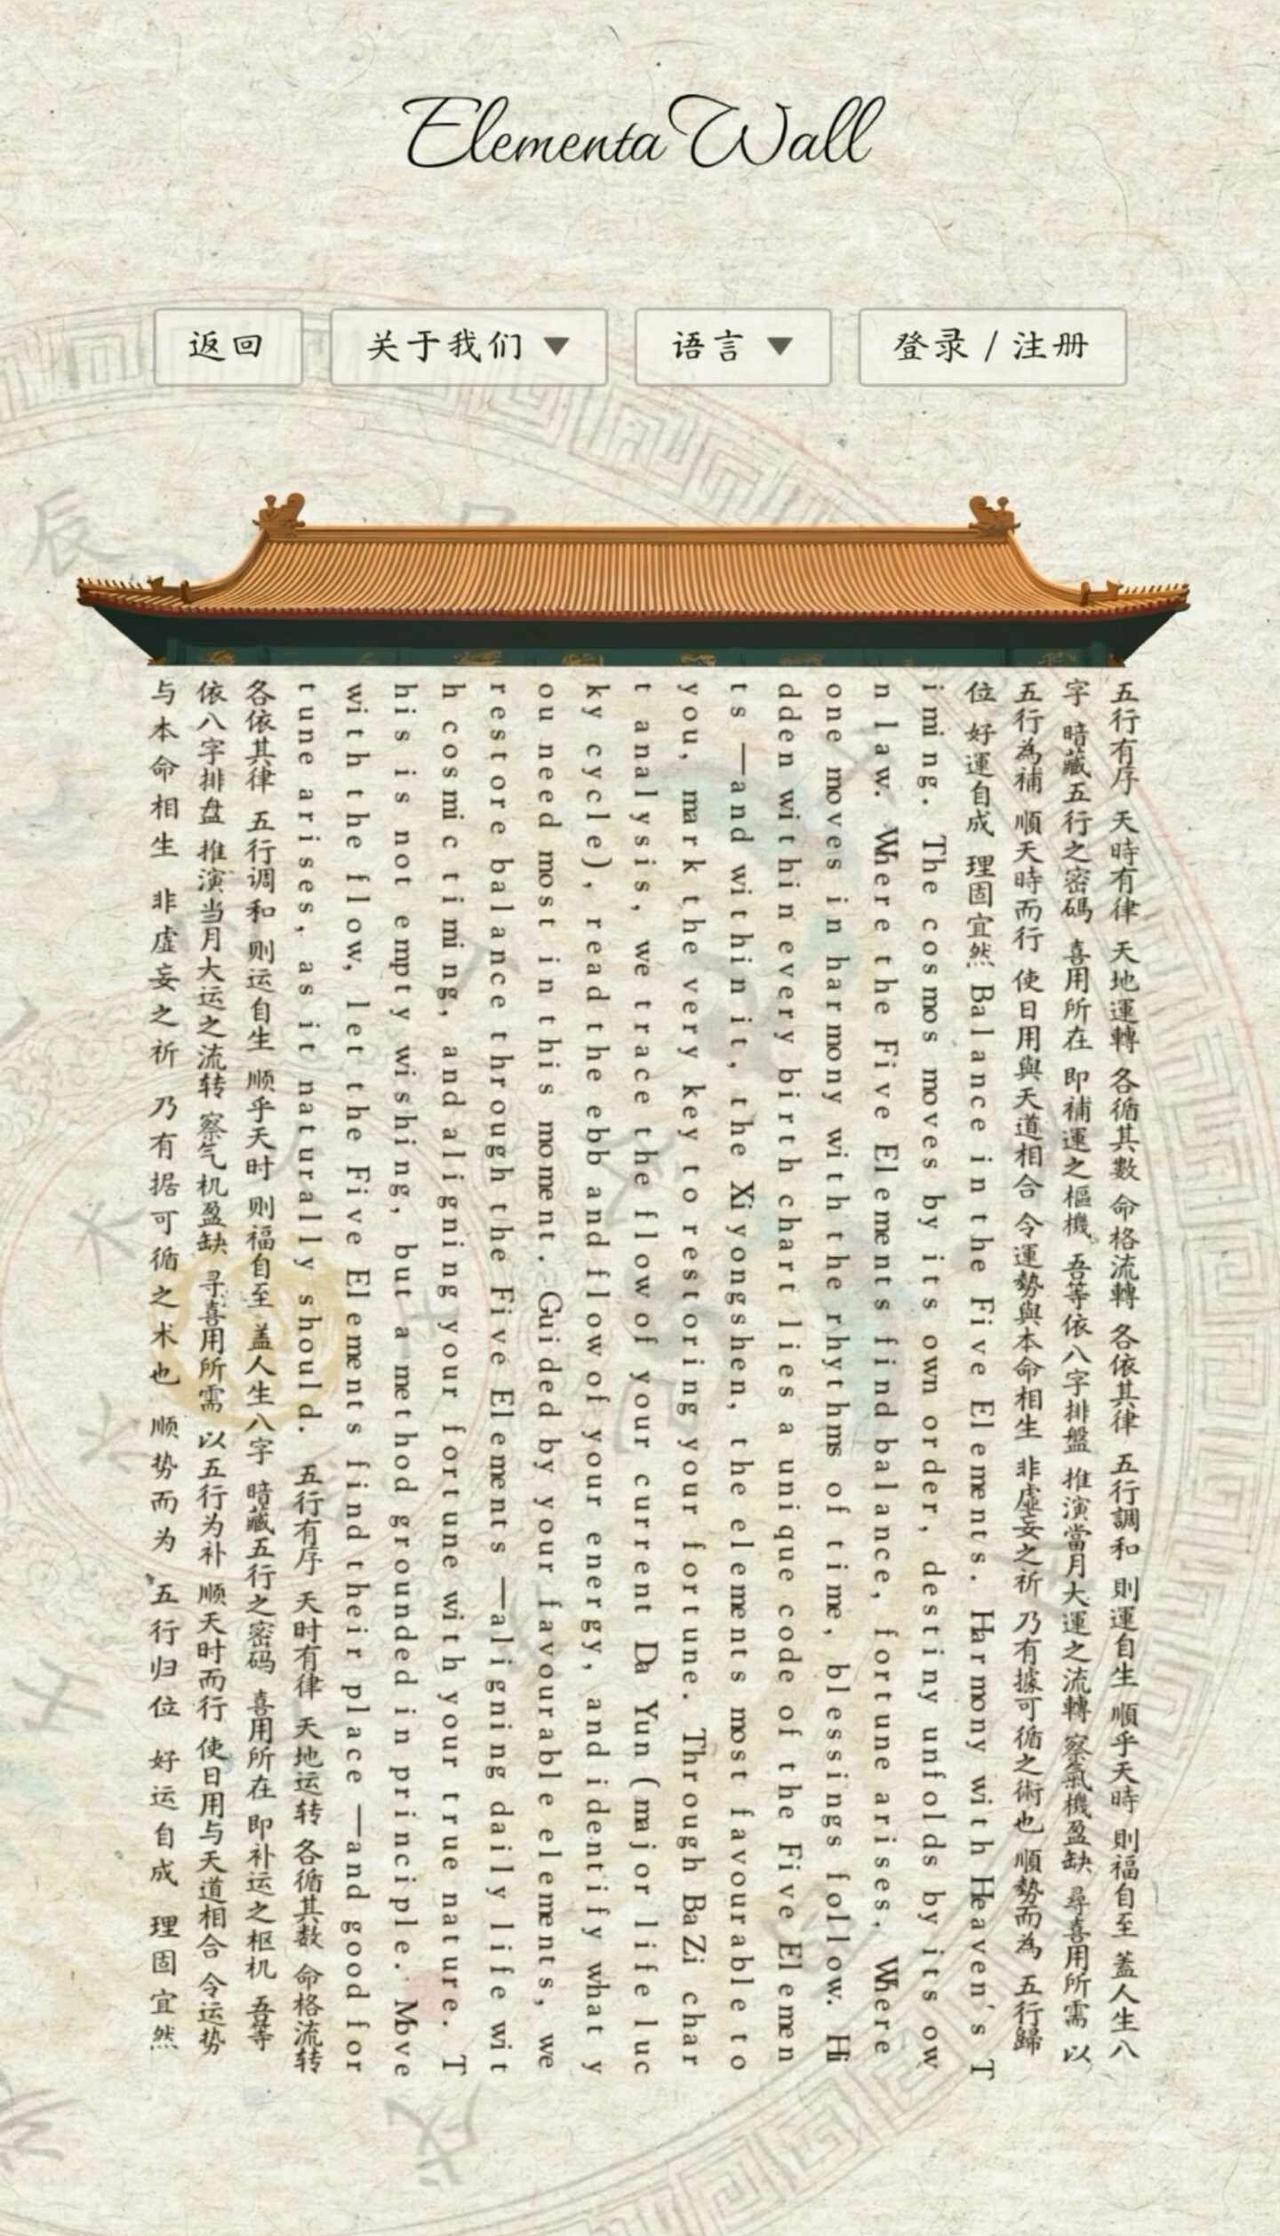 Elementa Wall
返回
关于我们 ▼
语言 ▼
登录 / 注册
五行有序 天時有律 天地運轉 各循其數 命格流轉 各依其律 五行調和 則運自生 順乎天時 則福自至 蓋人生八
字 暗藏五行之密碼 喜用所在 即補運之樞機 吾等依八字排盤 推演當月大運之流轉 察氣機盈缺 尋喜用所需 以
五行為補 順天時而行 使日用與天道相合 令運勢與本命相生 非虛妄之祈 乃有據可循之術也 順勢而為 五行歸
位 好運自成 理固宜然 Balance in the Five Elements. Harmony with Heaven's T
iming. The cosmos moves by its own order, destiny unfolds by its ow
n law. Where the Five Elements find balance, fortune arises. Where
one moves in harmony with the rhythms of time, blessings follow. Hi
dden within every birth chart lies a unique code of the Five Elemen
ts —and within it, the Xiyongshen, the elements most favourable to
you, mark the very key to restoring your fortune. Through BaZi char
t analysis, we trace the flow of your current Da Yun (major life luc
ky cycle), read the ebb and flow of your energy, and identify what y
ou need most in this moment. Guided by your favourable elements, we
restore balance through the Five Elements —aligning daily life wit
h cosmic timing, and aligning your fortune with your true nature. T
his is not empty wishing, but a method grounded in principle. Move
with the flow, let the Five Elements find their place —and good for
tune arises, as it naturally should. 五行有序 天时有律 天地运转 各循其数 命格流转
各依其律 五行调和 则运自生 顺乎天时 则福自至 盖人生八字 暗藏五行之密码 喜用所在 即补运之枢机 吾等
依八字排盘 推演当月大运之流转 察气机盈缺 寻喜用所需 以五行为补 顺天时而行 使日用与天道相合 令运势
与本命相生 非虚妄之祈 乃有据可循之术也 顺势而为 五行归位 好运自成 理固宜然